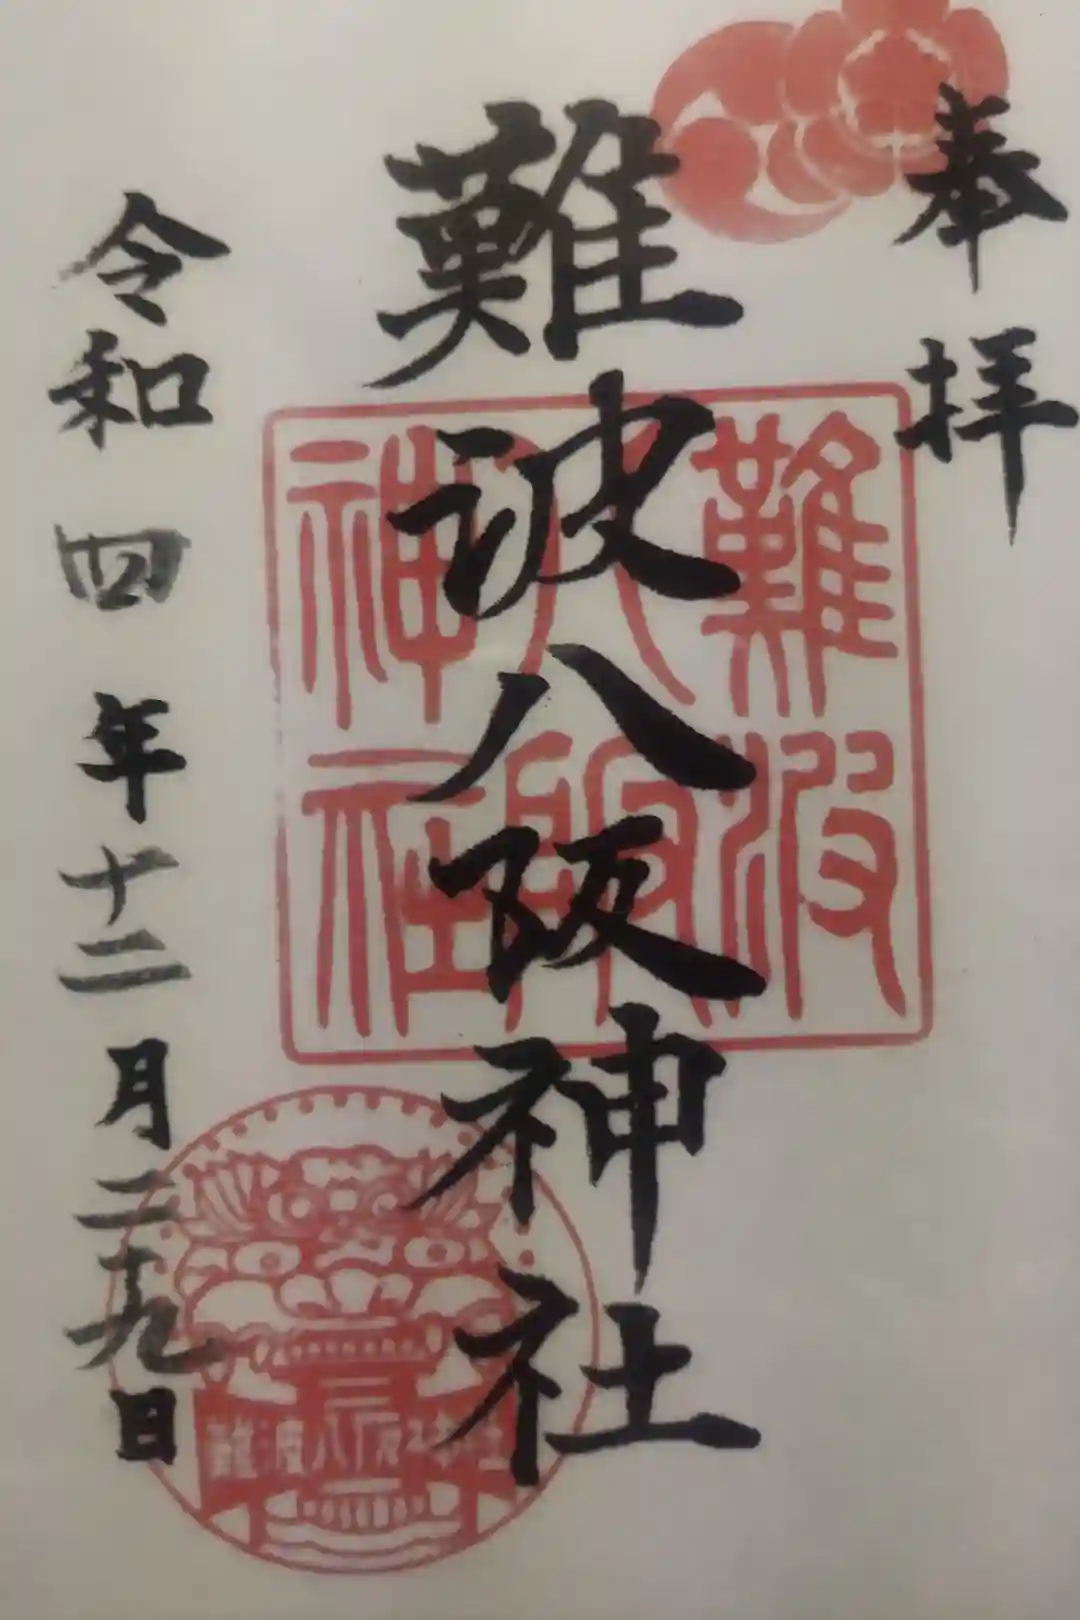 奉拝
難波八阪神社
難波
八阪
神社
難波八阪神社
令和四年十二月二十九日